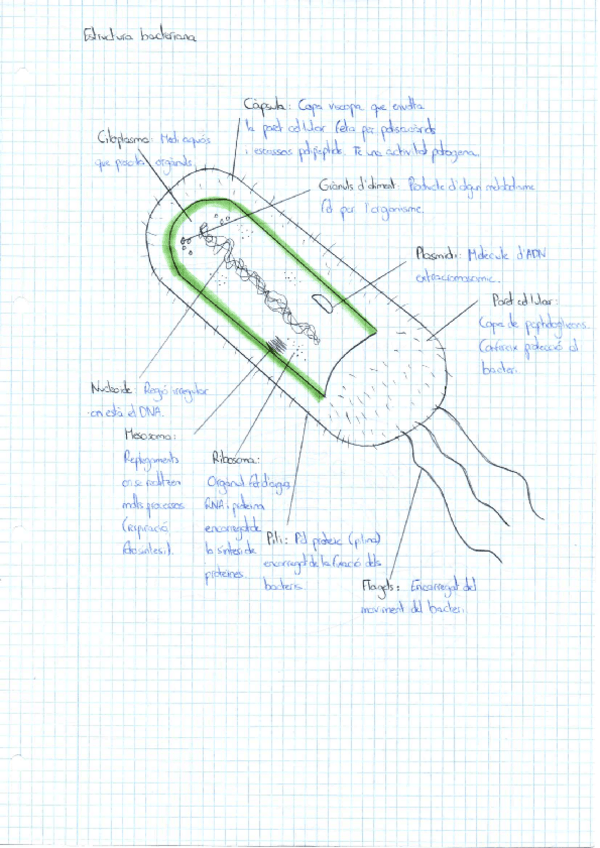 Estructura bacteriana
Càpsula: Capa viscosa que envolta
la paret cel·lular feta per polisacàrids
i escassos polipèptids. Té una activitat patògena.
Citoplasma: Medi aquós
que presenta orgànuls.
Grànuls d'aliment: Producte d'algun metabolisme
Fet per l'organisme.
Plasmidi: Molècula d'ADN
extracromosòmic.
Paret cel·lular:
Capa de peptidoglicans.
Confereix protecció al
bacteri.
Nucleoide: Regió irregular
on està el DNA.
Mesosoma:
Replegaments
on se realitzen
molts processos
(respiració
fotosíntesi).
Ribosoma:
Orgànul fet d'
RNA i proteïna
encarregat de
la síntesi de
proteïnes.
Pili: Pèl proteic (pilina)
encarregat de la fixació dels
bacteris.
Flagels: Encarregat del
moviment del bacteri.